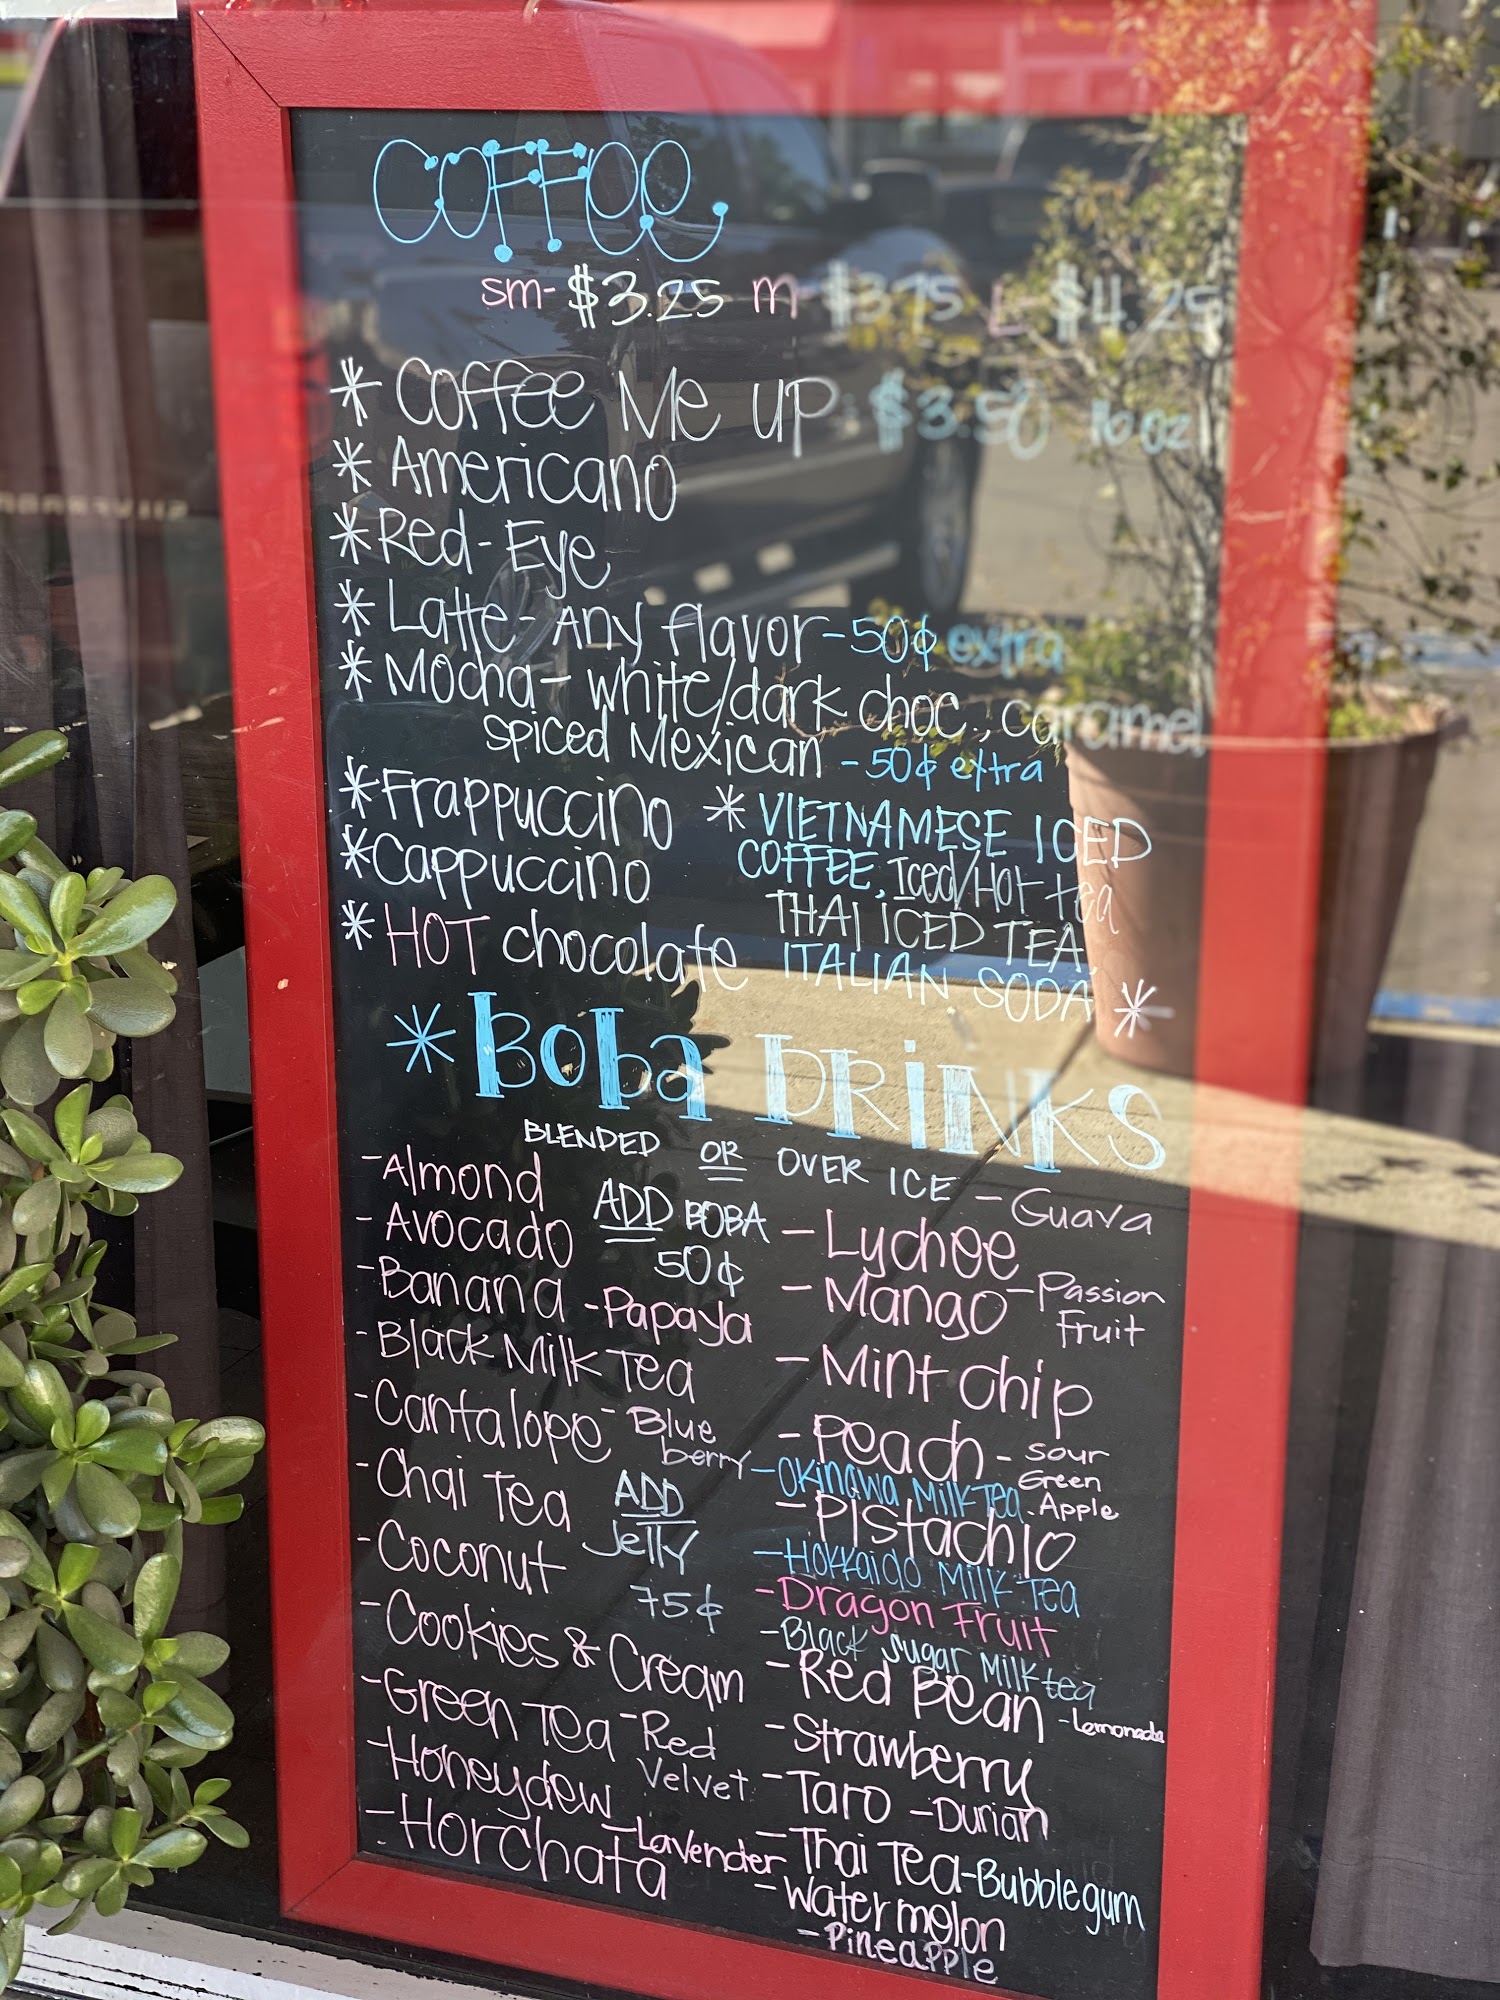 COFFEE
sm- $3.25 m- $3.75 L- $4.25
* Coffee Me up $3.50 16 oz
* Americano
* Red-Eye
* Latte - Any flavor - 50¢ extra
* Mocha - white/dark choc., caramel
spiced Mexican - 50¢ extra
* Frappuccino
* Cappuccino
* HOT chocolate
* VIETNAMESE ICED
COFFEE, Iced/Hot tea
THAI ICED TEA,
ITALIAN SODA *
* Boba DRINKS
BLENDED OR OVER ICE
- Almond
- Avocado
- Banana - Papaya
- Black Milk Tea
- Cantalope - Blue
berry
- Chai Tea
- Coconut
- Cookies & Cream
- Green Tea - Red
Velvet
- Honeydew
- Horchata - Lavender
ADD BOBA
50¢
ADD
Jelly
75¢
- Guava
- Lychee
- Mango - Passion
Fruit
- Mint Chip
- Peach - Sour
Green
Apple
- Okinawa Milk Tea
- Pistachio
- Hokkaido Milk Tea
- Dragon Fruit
- Black Sugar Milk tea
- Red Bean - Lemonada
- Strawberry
- Taro - Durian
- Thai Tea - Bubblegum
- Watermelon
- Pineapple